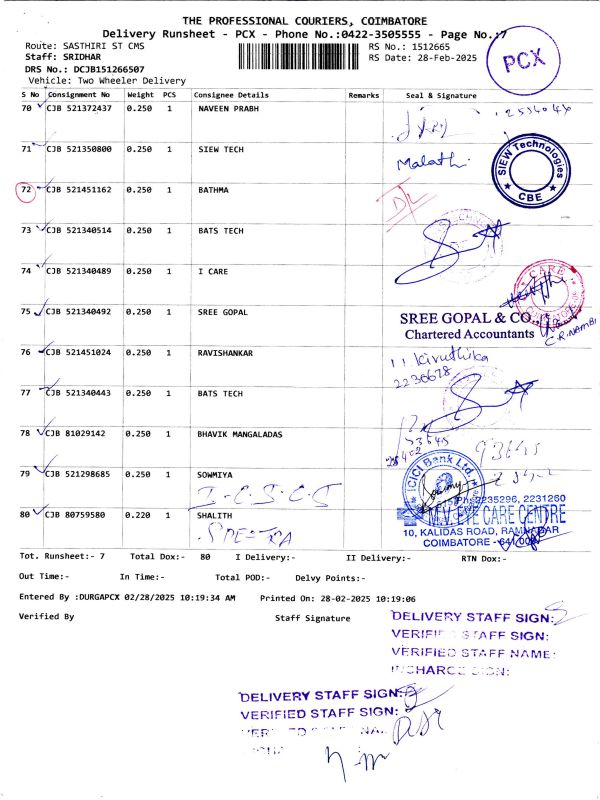 THE PROFESSIONAL COURIERS, COIMBATORE
Delivery Runsheet - PCX - Phone No.:0422-3505555 - Page No.:7
PCX
Route: SASTHIRI ST CMS
RS No.: 1512665
Staff: SRIDHAR
RS Date: 28-Feb-2025
DRS No.: DCJB151266507
Vehicle: Two Wheeler Delivery
S No Consignment No Weight PCS Consignee Details Remarks Seal & Signature
70 CJB 521372437 0.250 1 NAVEEN PRABH
71 CJB 521350800 0.250 1 SIEW TECH Malathi
SIEW Technologies CBE
72 CJB 521451162 0.250 1 BATHMA D/L
73 CJB 521340514 0.250 1 BATS TECH
74 CJB 521340489 0.250 1 I CARE
CARE
75 CJB 521340492 0.250 1 SREE GOPAL
SREE GOPAL & CO.,
Chartered Accountants
76 CJB 521451024 0.250 1 RAVISHANKAR
Kiruthika
2236678
77 CJB 521340443 0.250 1 BATS TECH
78 CJB 81029142 0.250 1 BHAVIK MANGALADAS
79 CJB 521298685 0.250 1 SOWMIYA
I-C-S-C-I
ICICI Bank Ltd.
80 CJB 80759580 0.220 1 SHALITH
Ph: 2235296, 2231260
M.V. EYE CARE CENTRE
10, KALIDAS ROAD, RAMNAGAR
COIMBATORE - 641 009
Tot. Runsheet:- 7 Total Dox:- 80 I Delivery:- II Delivery:- RTN Dox:-
Out Time:- In Time:- Total POD:- Delvy Points:-
Entered By :DURGAPCX 02/28/2025 10:19:34 AM Printed On: 28-02-2025 10:19:06
Verified By Staff Signature
DELIVERY STAFF SIGN:
VERIFIED STAFF SIGN:
VERIFIED STAFF NAME:
INCHARGE SIGN:
DELIVERY STAFF SIGN:
VERIFIED STAFF SIGN: